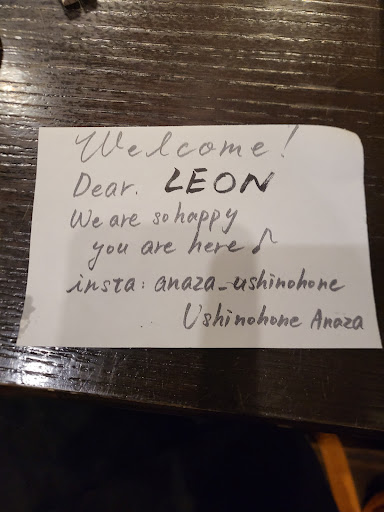 Welcome!
Dear. LEON
We are so happy
you are here ♪
insta: anaza_ushinohone
Ushinohone Anaza